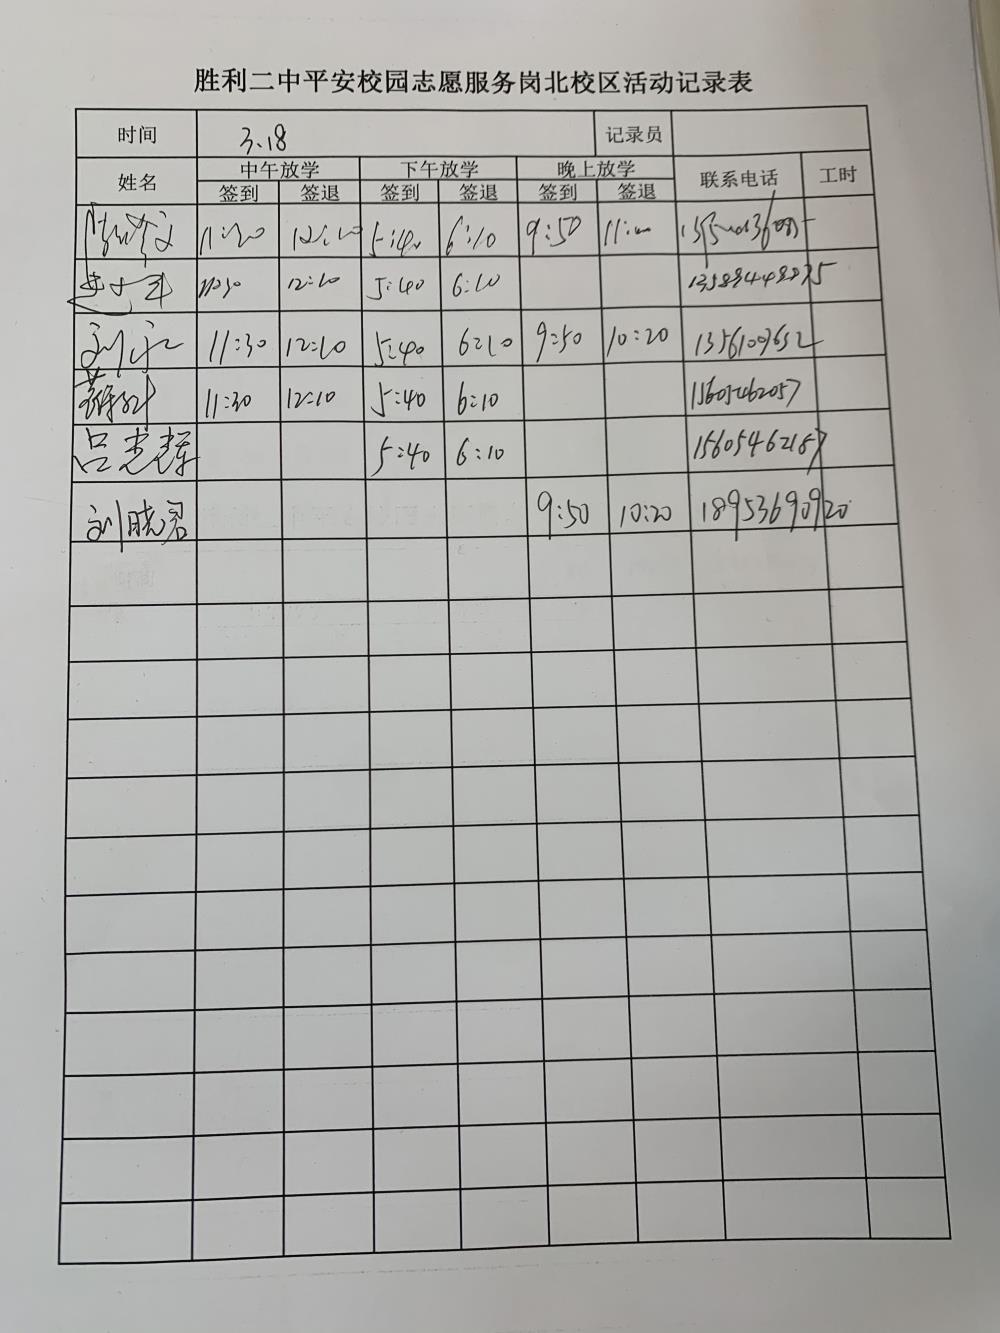 胜利二中平安校园志愿服务岗北校区活动记录表
时间 3.18 记录员
姓名 中午放学 下午放学 晚上放学 联系电话 工时
签到 签退 签到 签退 签到 签退
11:30 12:10 5:40 6:10 9:50
12:10 5:40 6:10
刘 11:30 12:10 5:40 6:10 9:50 10:20 13561009652
11:30 12:10 5:40 6:10 15605462057
吕志辉 5:40 6:10 15605462187
刘晓君 9:50 10:20 18953690920